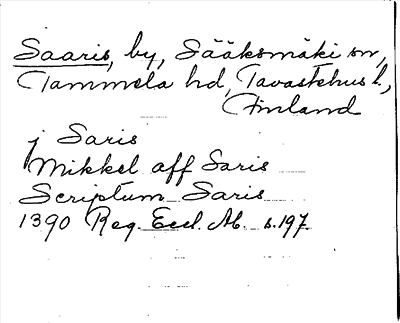 Saaris, by, Sääksmäki sn,
Tammela hd, Tavastehus l.,
Finland
j Saris
Mikkel aff Saris
Scriptum Saris
1390 Reg. Eccl. Ab. s. 197.